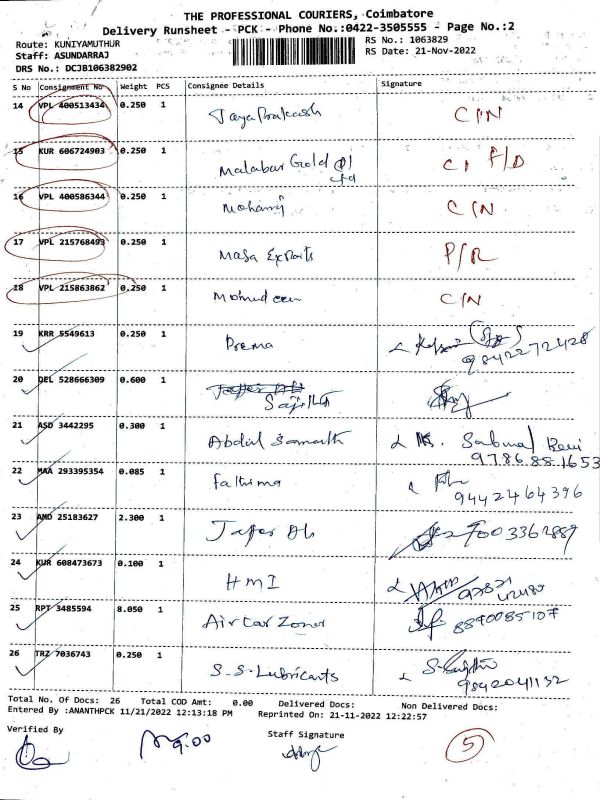 THE PROFESSIONAL COURIERS, Coimbatore
Delivery Runsheet - PCK - Phone No.:0422-3505555 - Page No.:2
Route: KUNIYAMUTHUR
RS No.: 1063829
Staff: ASUNDARRAJ
RS Date: 21-Nov-2022
DRS No.: DCJB106382902
S No Consignment No Weight PCS Consignee Details Signature
14 VPL 400513434 0.250 1 Jayaprakash C/N
15 KUR 606724903 0.250 1 Malabar Gold P/D
16 VPL 400586344 0.250 1 C/N
17 VPL 215768493 0.250 1 Masa Exports P/R
18 VPL 215863862 0.250 1 Mohideen C/N
19 KRR 5549613 0.250 1 Prema 9842272428
20 DEL 528666309 0.600 1
21 ASD 3442295 0.300 1 Abdul 9786881653
22 MAA 293395354 0.085 1 Fathima 9442464396
23 AMD 25183627 2.300 1 Jafer Ali 7003362889
24 KUR 608473673 0.100 1 HMI
25 RPT 3485594 8.050 1 Air Car Zone 8870085107
26 TRZ 7036743 0.250 1 S.S. Lubricants 9842041132
Total No. Of Docs: 26 Total COD Amt: 0.00 Delivered Docs: Non Delivered Docs:
Entered By :ANANTHPCK 11/21/2022 12:13:18 PM Reprinted On: 21-11-2022 12:22:57
Verified By
Staff Signature
5